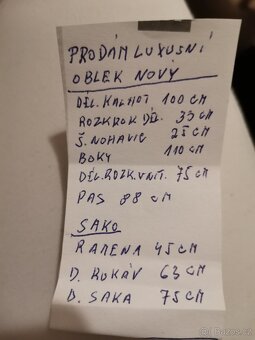 PRODÁM LUXUSNÍ
OBLEK NOVÝ
DÉL. KALHOT 100 CM
ROZKROK DÉL. 33 CM
Š. NOHAVIC 25 CM
BOKY 110 CM
DÉL. ROZK. VNIT. 75 CM
PAS 88 CM
SAKO
RAMENA 45 CM
D. RUKÁV 63 CM
D. SAKA 75 CM
Bazos.cz